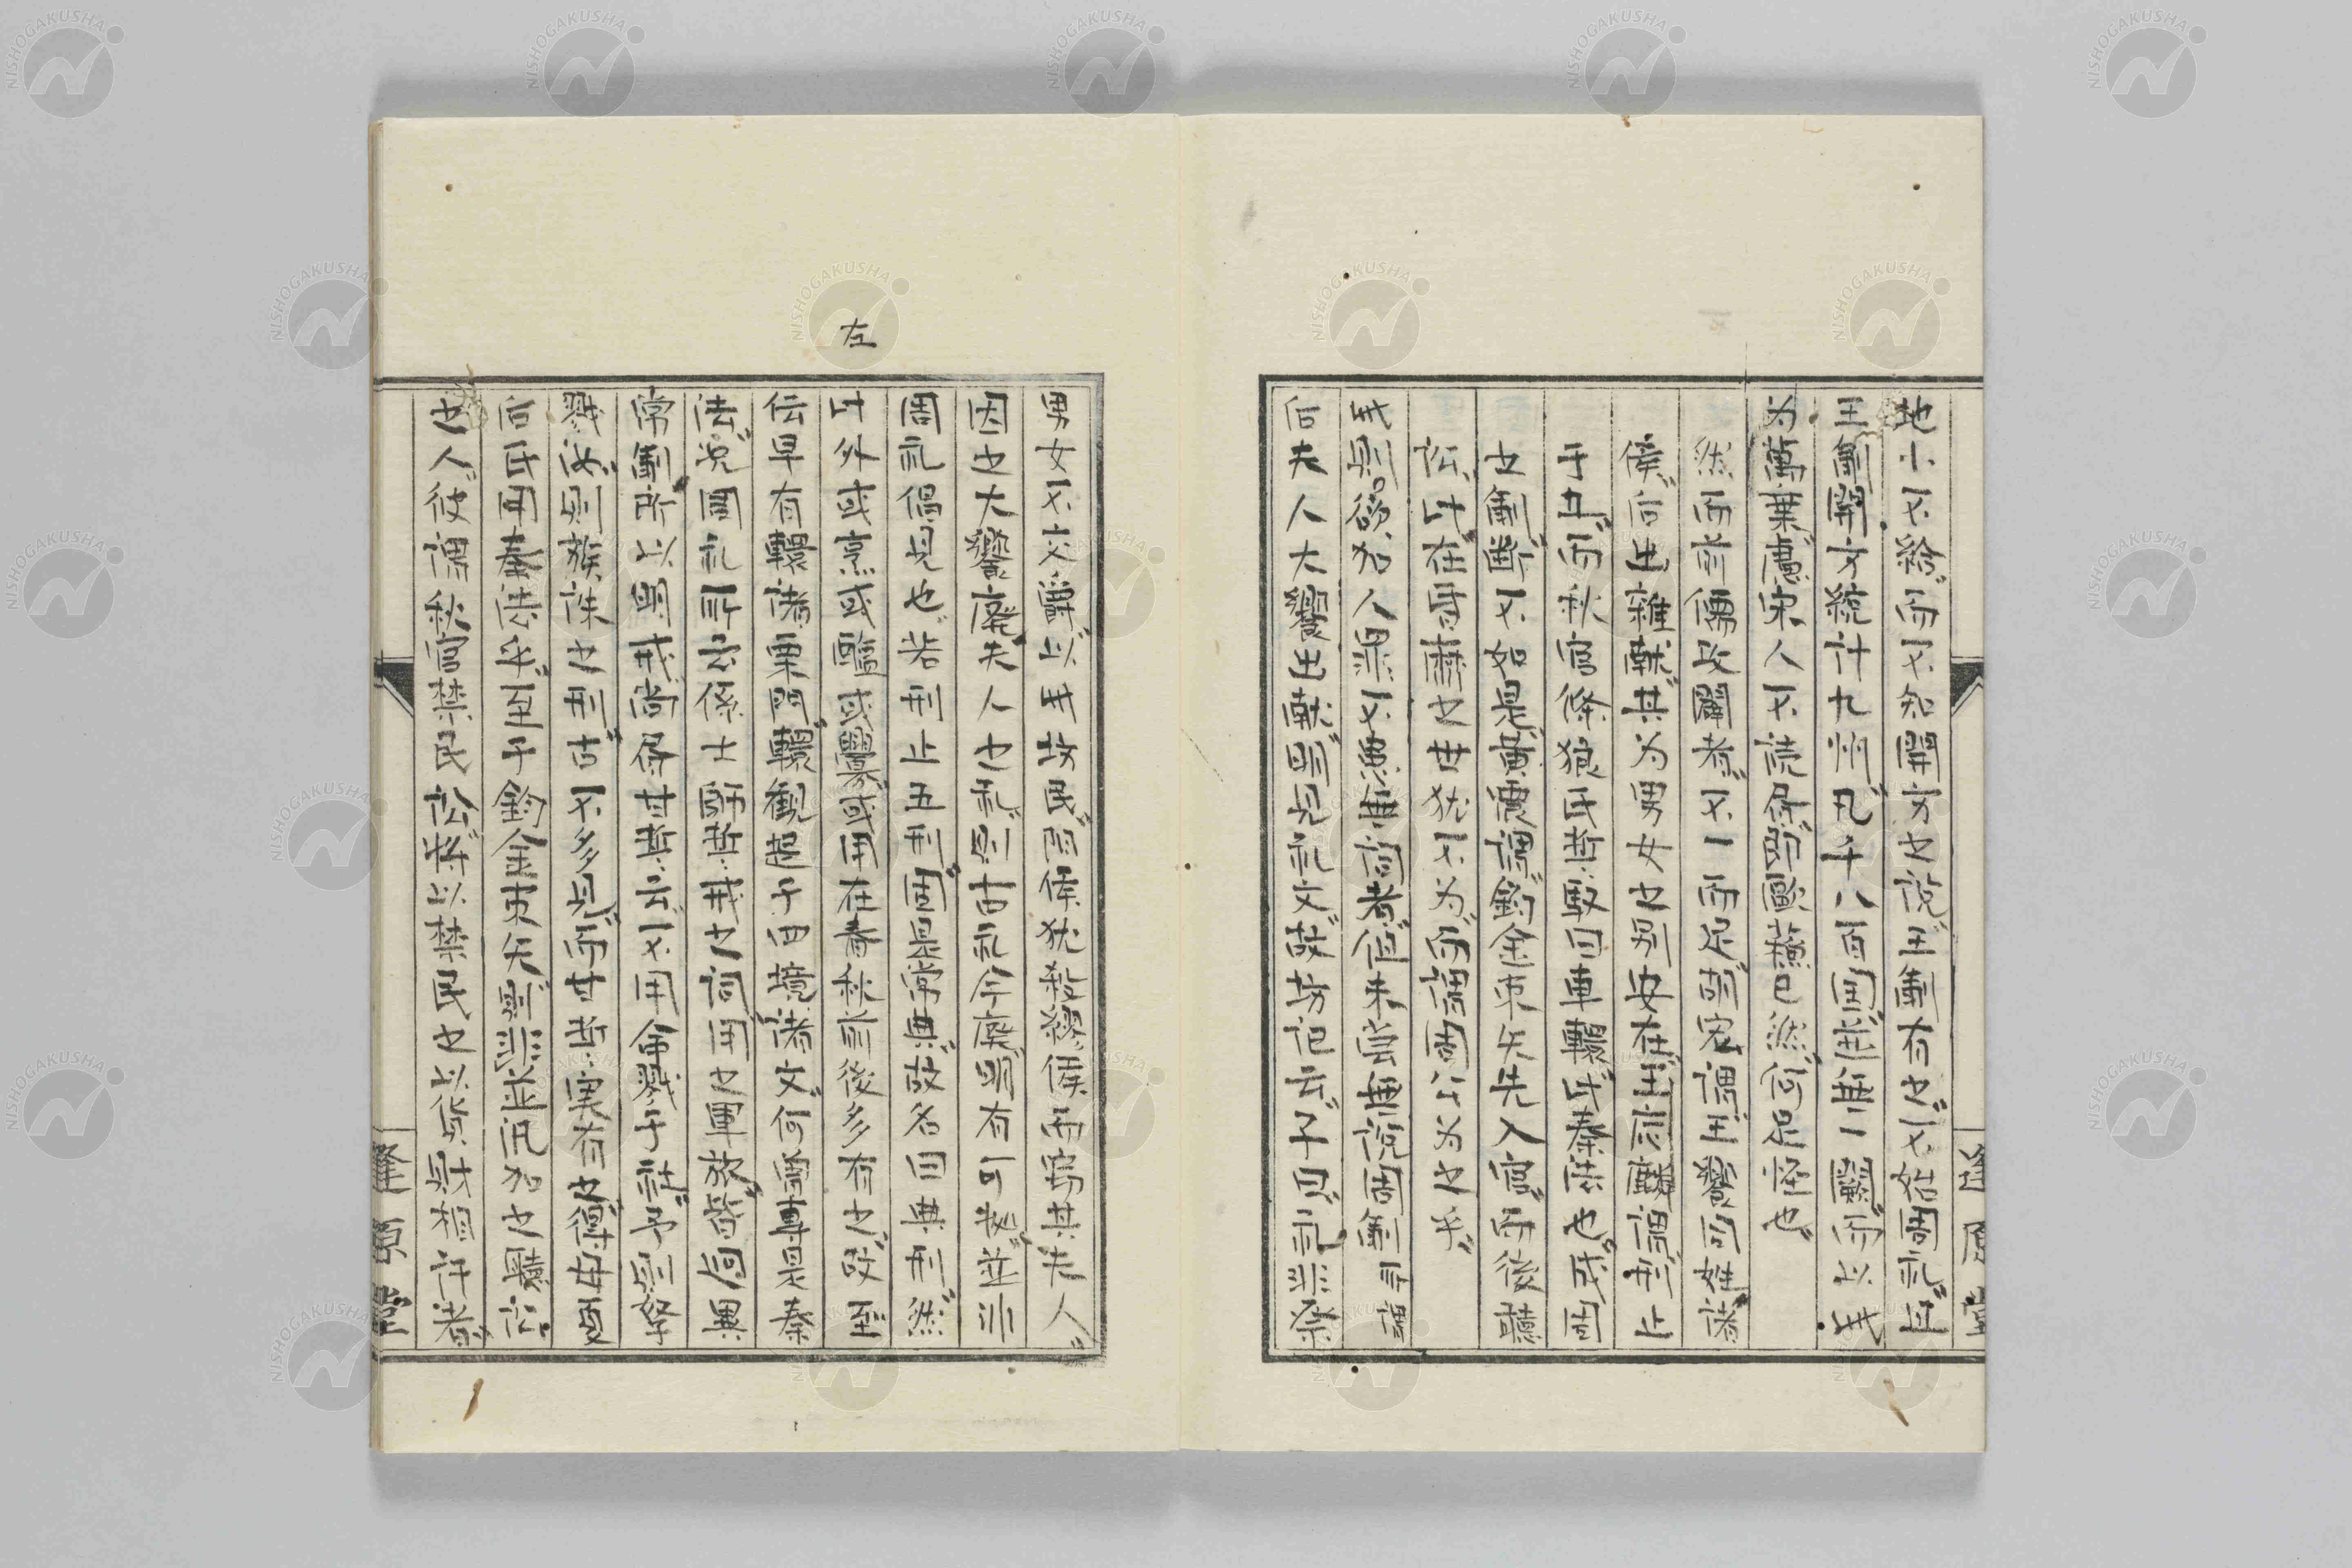 地小不給而不知開方之説王制有之不始周礼且
王制開方統計九州凡千八百国並無一闕而以此
為蔑棄慮宋人不読爾即歐蘇已然何足怪也
然而前儒攻闢者不一而足胡宏謂王饗同姓諸
侯后出雜献其為男女之別安在王応麟謂刑止
于五而秋官條狼氏誓馭曰車轘氏秦法也或両
之制断不如是黄震謂鈞金束矢先入官而後聴
訟此在昏濁之世犹不為而謂周公為之乎
此則欲加人罪不患無詞者但未嘗無説周制王
后夫人大饗出献明見礼文故坊記云子曰礼非祭
男女不交爵以此坊民陽侯犹殺繆侯而窃其夫人
因之大饗廃夫人之礼則古礼今廃明有可拠並非
周礼倡見也若刑止五刑固是常典故名曰典刑然
此外或烹或醢或轘或用在春秋前後多有之故左
伝早有轘諸栗門轘観起于四境諸文何嘗専是秦
法況周礼所云係士師誓戒之詞用之軍旅皆何異
常制所以明戒尚得甘誓云不用命戮于社予則孥
戮汝則族誅之刑古不多見而甘誓実有之得毋夏
后氏用秦法乎至于鈞金束矢則非並訊加之贖訟
之人彼謂秋官禁民訟将以禁民之以貨財相訴者
左
逢原堂
NISHOGAKUSHA